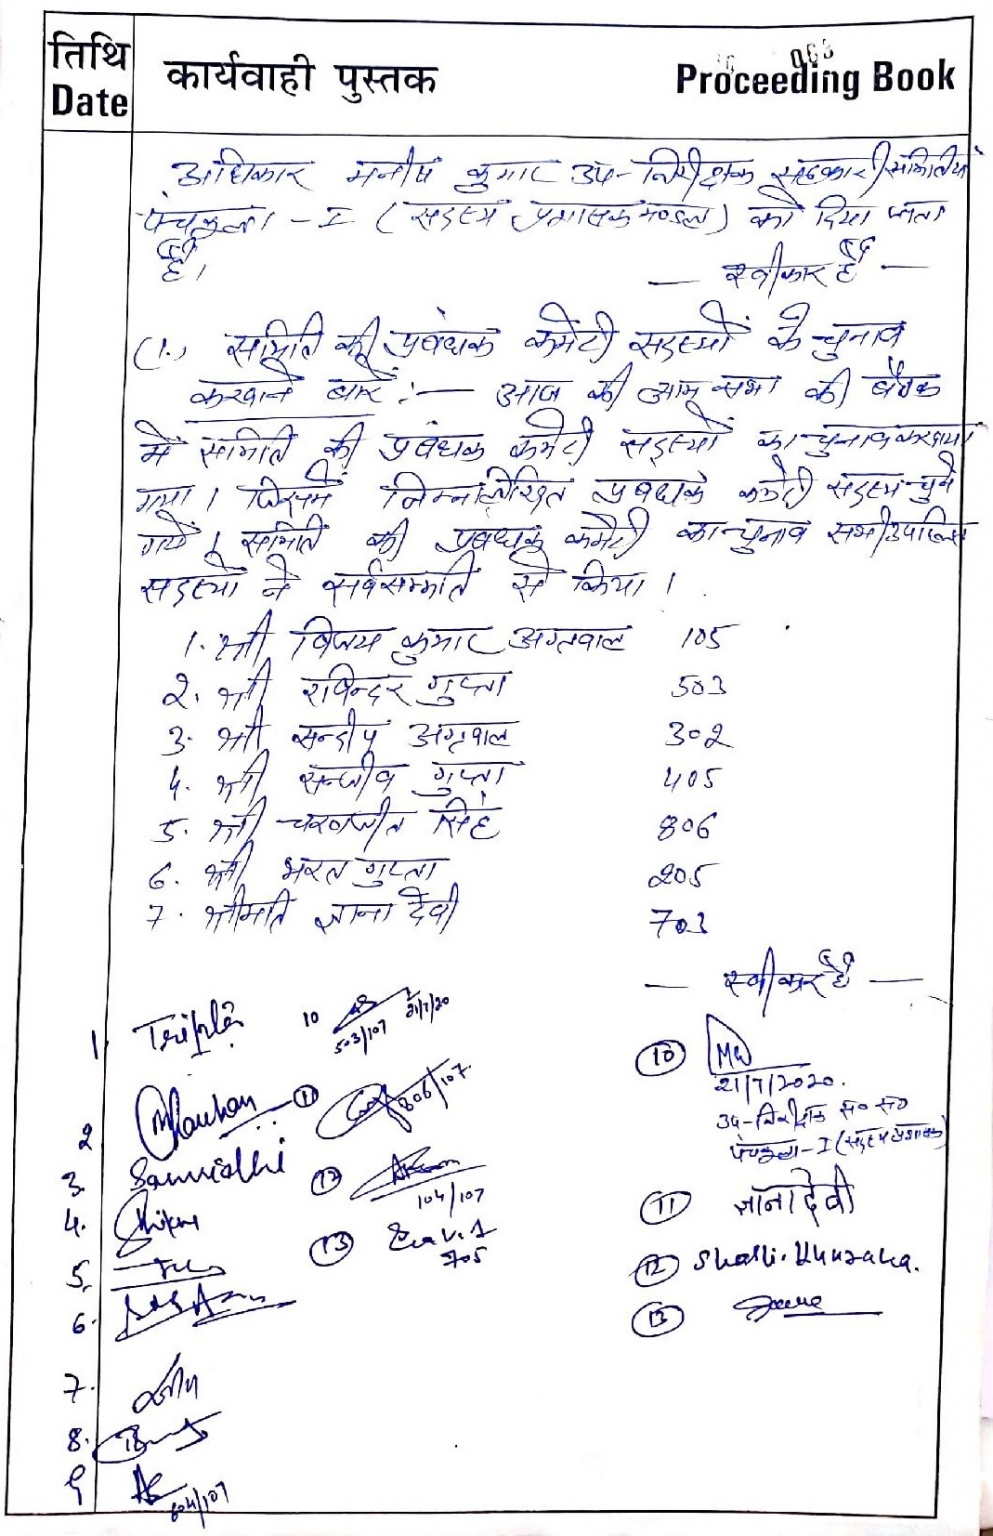 तिथि
Date
कार्यवाही पुस्तक
063
Proceeding Book
अधिकार मनीष कुमार उप-निरीक्षक सहकारी समितियां
पंचकुला - I (सदस्य प्रशासक मण्डल) को दिया जाता
है।
— स्वीकार है —
(1.) समिति की प्रबंधक कमेटी सदस्यों के चुनाव
करवाने बारे :— आज की आम सभा की बैठक
में समिति की प्रबंधक कमेटी सदस्यों का चुनाव करवाया
गया। जिसमें निम्नलिखित प्रबंधक कमेटी सदस्य चुने
गये। समिति की प्रबंधक कमेटी का चुनाव सभी उपस्थित
सदस्यों ने सर्वसम्मति से किया।
1. श्री विजय कुमार अग्रवाल 105
2. श्री रविन्दर गुप्ता 503
3. श्री सन्दीप अग्रवाल 302
4. श्री सन्जीव गुप्ता 405
5. श्री चरणजीत सिंह 806
6. श्री भरत गुप्ता 205
7. श्रीमति ज्ञाना देवी 703
— स्वीकार है —
1 Tripta
10 503/107 21/7/20
2 Chauhan
11 806/107
3. Samridhi
12 104/107
4.
13 705
5.
6.
7.
8.
9 604/107
10
21/7/2020.
उप-निरीक्षक स० स०
पंचकुला-I (सदस्य प्रशासक)
11 ज्ञाना देवी
12 Shalli
13